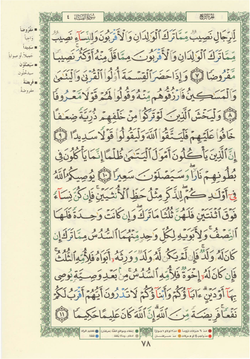 لِّلرِّجَالِ نَصِيبٌ مِّمَّا تَرَكَ الْوَالِدَانِ وَالْأَقْرَبُونَ وَلِلنِّسَاءِ نَصِيبٌ
مِّمَّا تَرَكَ الْوَالِدَانِ وَالْأَقْرَبُونَ مِمَّا قَلَّ مِنْهُ أَوْ كَثُرَ نَصِيبًا
مَّفْرُوضًا ٧ وَإِذَا حَضَرَ الْقِسْمَةَ أُولُو الْقُرْبَىٰ وَالْيَتَامَىٰ
وَالْمَسَاكِينُ فَارْزُقُوهُم مِّنْهُ وَقُولُوا لَهُمْ قَوْلًا مَّعْرُوفًا
٨ وَلْيَخْشَ الَّذِينَ لَوْ تَرَكُوا مِنْ خَلْفِهِمْ ذُرِّيَّةً ضِعَافًا
خَافُوا عَلَيْهِمْ فَلْيَتَّقُوا اللَّهَ وَلْيَقُولُوا قَوْلًا سَدِيدًا ٩
إِنَّ الَّذِينَ يَأْكُلُونَ أَمْوَالَ الْيَتَامَىٰ ظُلْمًا إِنَّمَا يَأْكُلُونَ فِي
بُطُونِهِمْ نَارًا وَسَيَصْلَوْنَ سَعِيرًا ١٠ يُوصِيكُمُ اللَّهُ
فِي أَوْلَادِكُمْ لِلذَّكَرِ مِثْلُ حَظِّ الْأُنثَيَيْنِ فَإِن كُنَّ نِسَاءً
فَوْقَ اثْنَتَيْنِ فَلَهُنَّ ثُلُثَا مَا تَرَكَ وَإِن كَانَتْ وَاحِدَةً فَلَهَا
النِّصْفُ وَلِأَبَوَيْهِ لِكُلِّ وَاحِدٍ مِّنْهُمَا السُّدُسُ مِمَّا تَرَكَ إِن
كَانَ لَهُ وَلَدٌ فَإِن لَّمْ يَكُن لَّهُ وَلَدٌ وَوَرِثَهُ أَبَوَاهُ فَلِأُمِّهِ الثُّلُثُ
فَإِن كَانَ لَهُ إِخْوَةٌ فَلِأُمِّهِ السُّدُسُ مِن بَعْدِ وَصِيَّةٍ يُوصِي
بِهَا أَوْ دَيْنٍ آبَاؤُكُمْ وَأَبْنَاؤُكُمْ لَا تَدْرُونَ أَيُّهُمْ أَقْرَبُ لَكُمْ
نَفْعًا فَرِيضَةً مِّنَ اللَّهِ إِنَّ اللَّهَ كَانَ عَلِيمًا حَكِيمًا ١١
٧٨